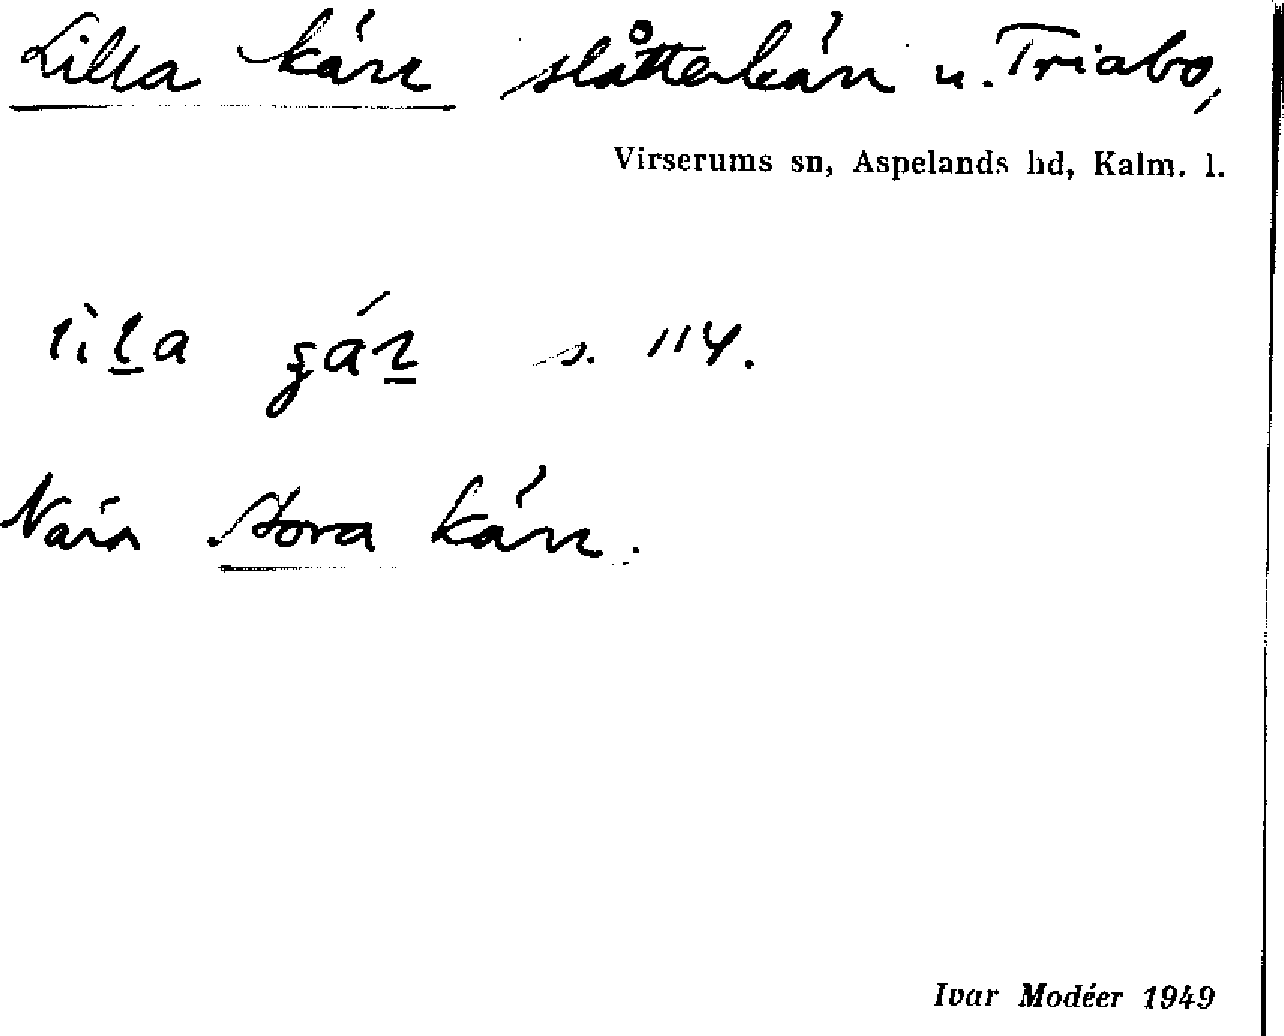 Lilla kärr slåtterkärr u. Triabo,
Virserums sn, Aspelands hd, Kalm. l.
s. 114.
Nära Stora kärr.
Ivar Modéer 1949